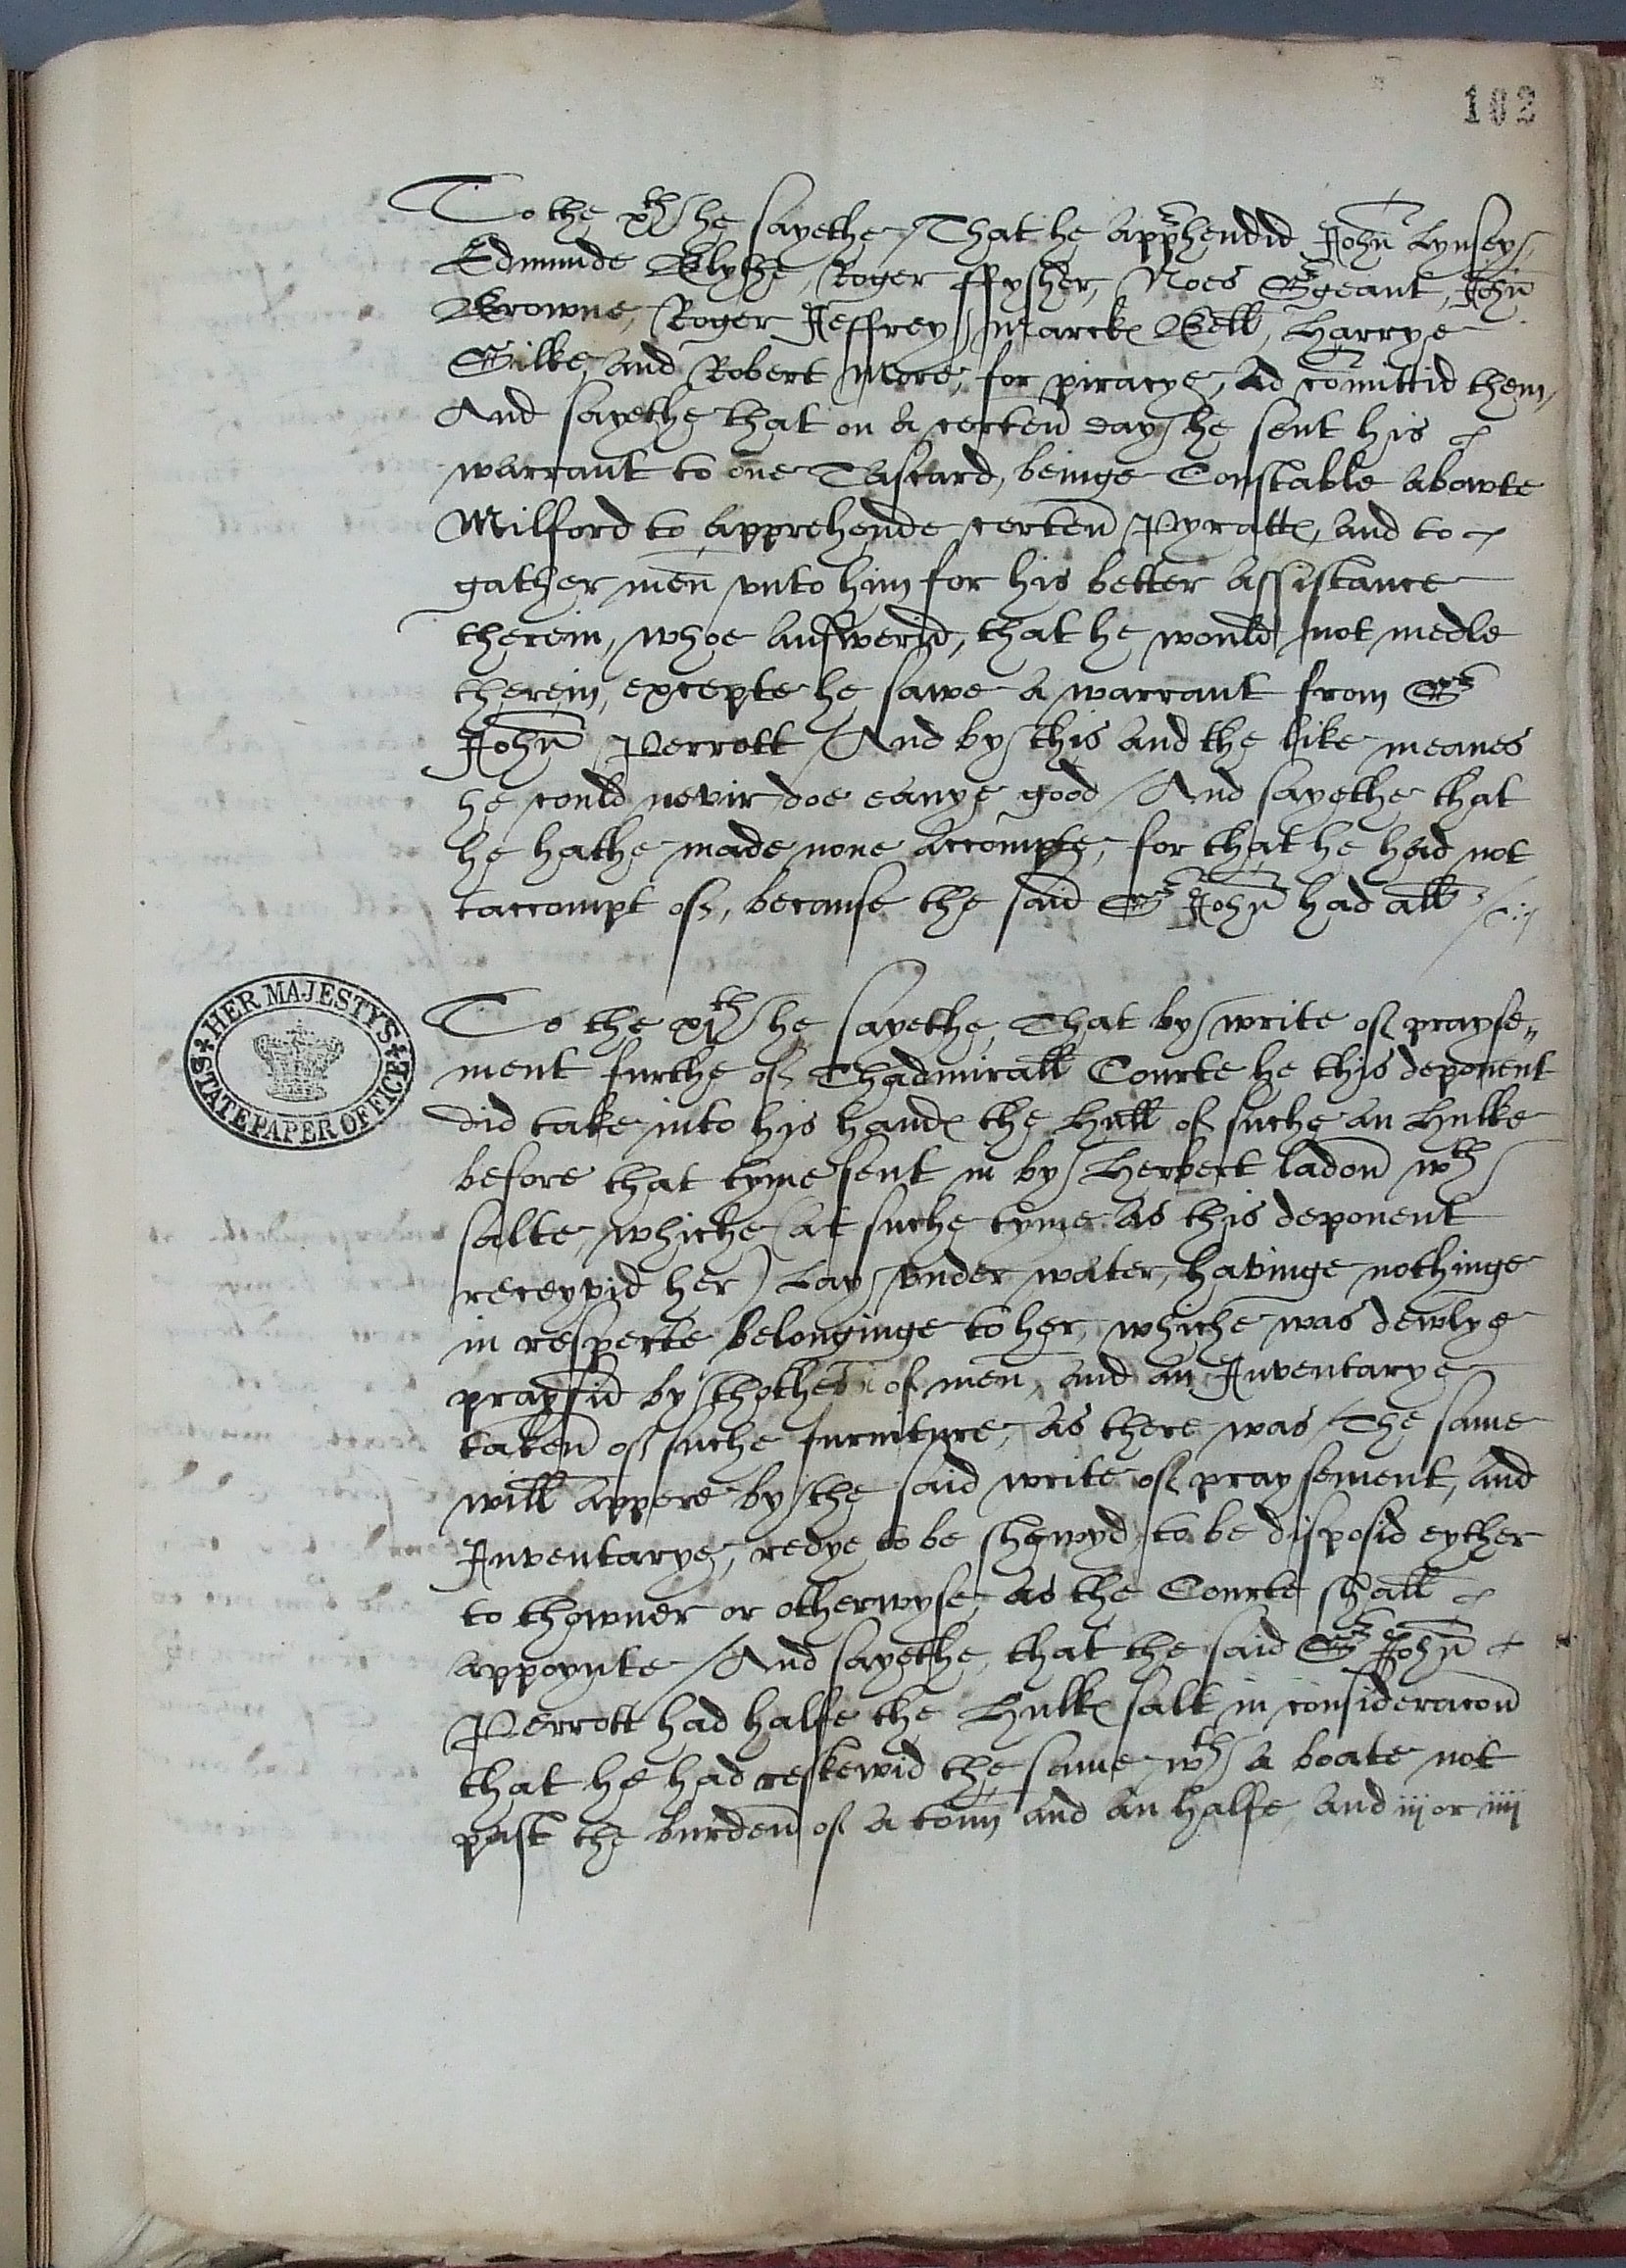 102
To the xth he sayethe, That he apprhendid John Lynsey,
Edmunde Blythe, Roger ffysher, Noes Sgeant, John
Browne, Roger Jeffrey, Marcke Bell, Harrye
Gilke, and Robert More, for piracye, ad comittid them,
And sayethe that on a certen day he sent his
warrant to one Tascard, beinge Constable abowte
Milford to apprehende certen Pyratte, and to
gather men vnto him for his better assistance
therein, whoe answerid, that he would not medle
therein, excepte he sawe a warrant from Sr
John Perrott / And by this and the like meanes
he could nevir doe eanye good / And sayethe that
he hathe made none accompte, for that he had not
taccompt of, because the said Sr John had all
HER MAJESTY'S STATE PAPER OFFICE
To the xjth he sayethe, That by write of prayse„
ment furthe of Thadmirall Courte he this deponent
did take into his hande the Hull of suche an Hulke
before that tyme sent in by Herbert ladon wth
salte, whiche (at suche tyme as this deponent
receyvid her) Lay vnder water, havinge nothinge
in respecte belonginge to her, whiche was dewlye
praysid by thothes of men, and an Inventarye
taken of suche furniture, as there was / The same
will appere by the said write of praysement, and
Inventarye, redye to be shewyd, to be disposid eyther
to thowner or otherwyse, as the Courte shall
appoynte / And sayethe, that the said Sr John
Perrott had halfe the Hulke salt in consideracon
that he had reskewid the same wth a boate not
past the burden of a tonn and an halfe, and iij or iiij